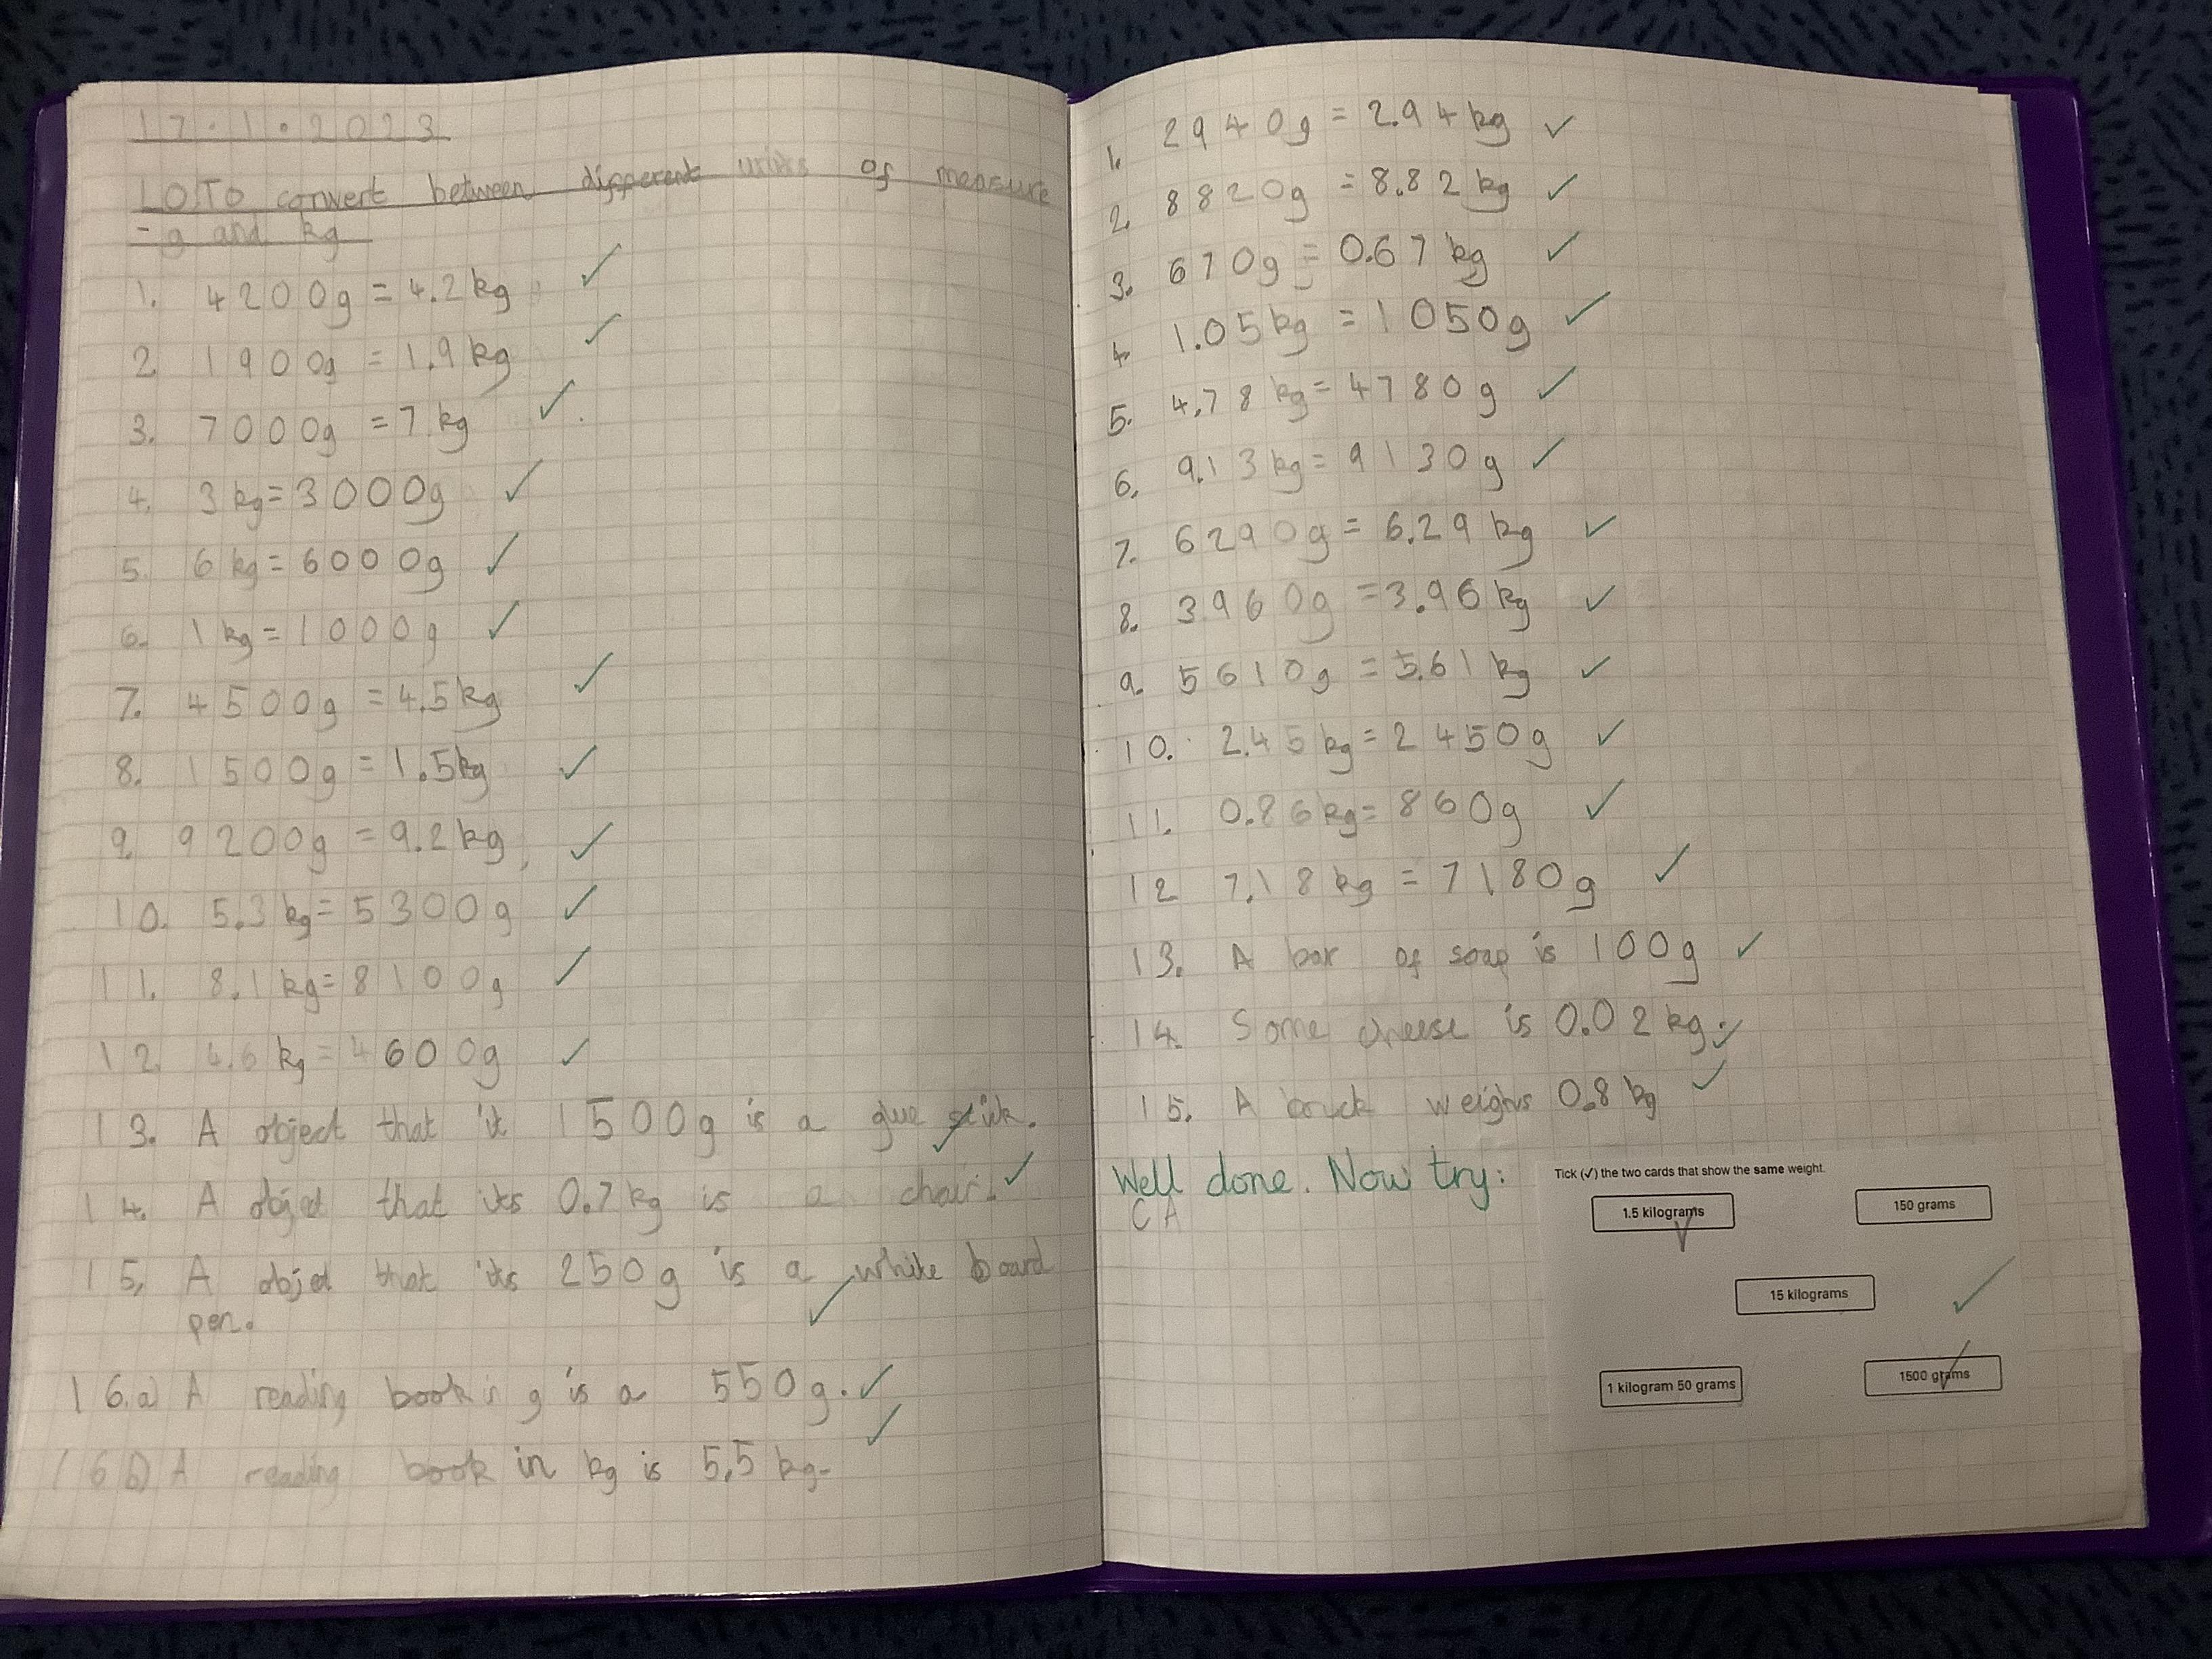 17.1.2023
LO:To convert between different units of measure
- g and kg
1. 4200g = 4.2kg
2 1900g = 1.9kg
3. 7000g = 7 kg
4. 3 kg = 3000g
5. 6 kg = 6000g
6. 1 kg = 1000g
7. 4500g = 4.5kg
8. 1500g = 1.5kg
9. 9200g = 9.2kg
10. 5.3 kg = 5300g
11. 8.1 kg = 8100g
12. 4.6 kg = 4600g
13. A object that it 1500g is a glue stick.
14. A objet that its 0.7kg is a chair.
15. A objet that its 250g is a white board
pen.
16.a) A reading book in g is a 550g.
16b) A reading book in kg is 5.5 kg.
1. 2940g = 2.94kg
2. 8820g = 8.82 kg
3. 670g = 0.67 kg
4. 1.05kg = 1050g
5. 4.78 kg = 4780g
6. 9.13 kg = 9130g
7. 6290g = 6.29 kg
8. 3960g = 3.96 kg
9. 5610g = 5.61 kg
10. 2.45 kg = 2450g
11. 0.86kg = 860g
12 7.18 kg = 7180g
13. A bar of soap is 100g
14. Some cheese is 0.02kg.
15. A brick weighs 0.8 kg
Well done. Now try:
CA
Tick (✓) the two cards that show the same weight.
1.5 kilograms
150 grams
15 kilograms
1 kilogram 50 grams
1500 grams